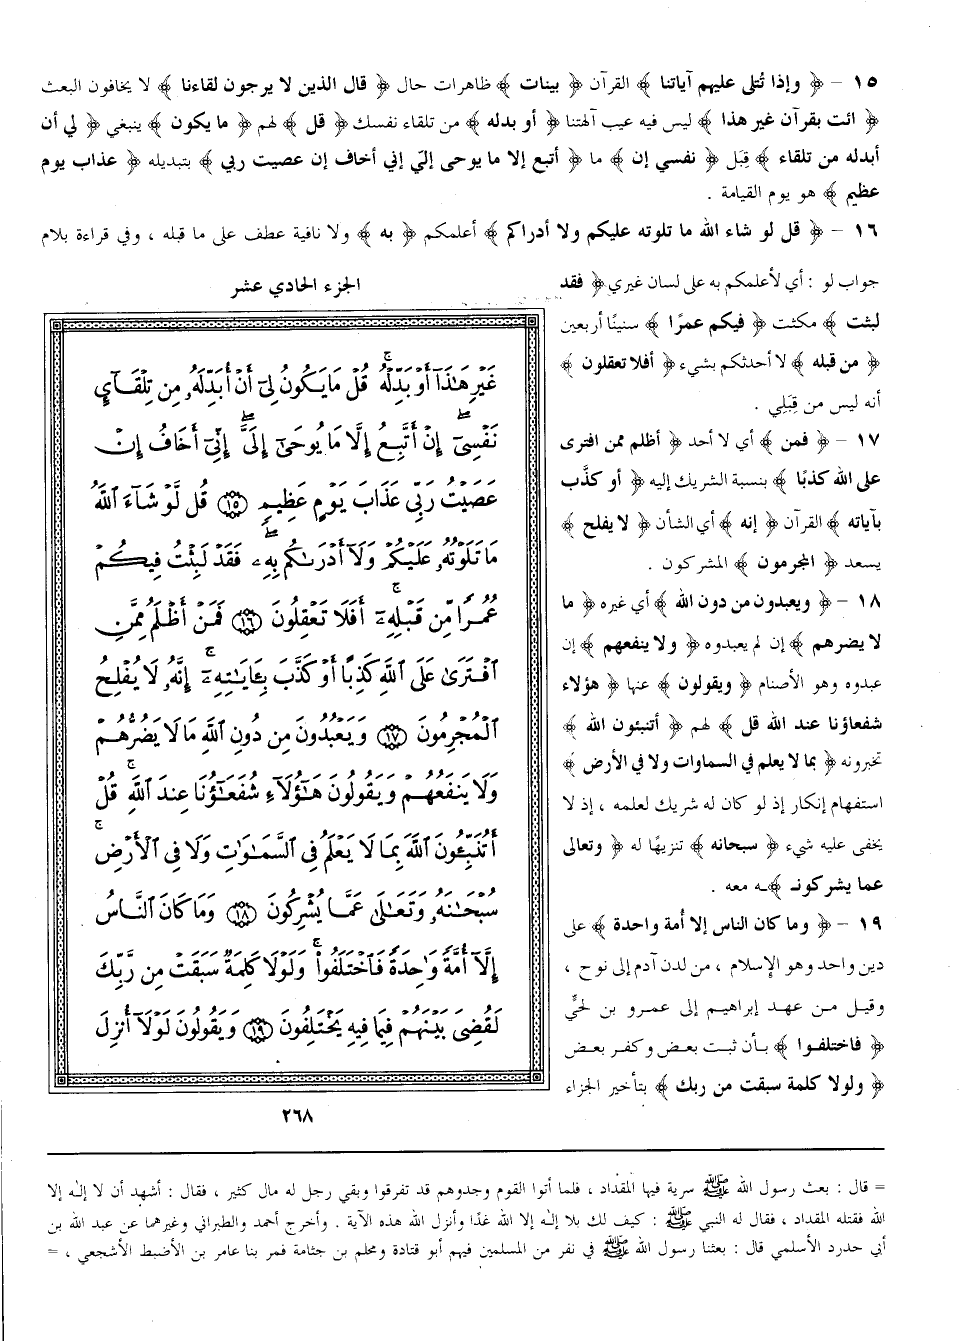 ١٥ – ﴿ وإذا تُتلى عليهم آياتنا ﴾ القرآن ﴿ بينات ﴾ ظاهرات حال ﴿ قال الذين لا يرجون لقاءنا ﴾ لا يخافون البعث
﴿ ائت بقرآن غير هذا ﴾ ليس فيه عيب آلهتنا ﴿ أو بدله ﴾ من تلقاء نفسك ﴿ قل ﴾ لهم ﴿ ما يكون ﴾ ينبغي ﴿ لي أن
أبدله من تلقاء ﴾ قِبَل ﴿ نفسي إن ﴾ ما ﴿ أتبع إلا ما يوحى إليّ إني أخاف إن عصيت ربي ﴾ بتبديله ﴿ عذاب يوم
عظيم ﴾ هو يوم القيامة .
١٦ – ﴿ قل لو شاء الله ما تلوته عليكم ولا أدراكم ﴾ أعلمكم ﴿ به ﴾ ولا نافية عطف على ما قبله ، وفي قراءة بلام
جواب لو : أي لأعلمكم به على لسان غيري ﴿ فقد
لبثت ﴾ مكثت ﴿ فيكم عمرًا ﴾ سنينًا أربعين
﴿ من قبله ﴾ لا أحدثكم بشيء ﴿ أفلا تعقلون ﴾
أنه ليس من قِبَلِي .
١٧ – ﴿ فمن ﴾ أي لا أحد ﴿ أظلم ممن افترى
على الله كذبًا ﴾ بنسبة الشريك إليه ﴿ أو كذَّب
بآياته ﴾ القرآن ﴿ إنه ﴾ أي الشأن ﴿ لا يفلح ﴾
يسعد ﴿ المجرمون ﴾ المشركون .
١٨ – ﴿ ويعبدون من دون الله ﴾ أي غيره ﴿ ما
لا يضرهم ﴾ إن لم يعبدوه ﴿ ولا ينفعهم ﴾ إن
عبدوه وهو الأصنام ﴿ ويقولون ﴾ عنها ﴿ هؤلاء
شفعاؤنا عند الله قل ﴾ لهم ﴿ أتنبئون الله ﴾
تخبرونه ﴿ بما لا يعلم في السماوات ولا في الأرض ﴾
استفهام إنكار إذ لو كان له شريك لعلمه ، إذ لا
يخفى عليه شيء ﴿ سبحانه ﴾ تنزيهًا له ﴿ وتعالى
عما يشركونـ ﴾ـه معه .
١٩ – ﴿ وما كان الناس إلا أمة واحدة ﴾ على
دين واحد وهو الإسلام ، من لدن آدم إلى نوح ،
وقيل من عهد إبراهيم إلى عمرو بن لحيٍّ
﴿ فاختلفوا ﴾ بأن ثبت بعض وكفر بعض
﴿ ولولا كلمة سبقت من ربك ﴾ بتأخير الجزاء
الجزء الحادي عشر
غَيْرِ هَٰذَآ أَوْ بَدِّلْهُ ۚ قُلْ مَا يَكُونُ لِىٓ أَنْ أُبَدِّلَهُۥ مِن تِلْقَآئِ
نَفْسِىٓ ۖ إِنْ أَتَّبِعُ إِلَّا مَا يُوحَىٰٓ إِلَىَّ ۖ إِنِّىٓ أَخَافُ إِنْ
عَصَيْتُ رَبِّى عَذَابَ يَوْمٍ عَظِيمٍ ١٥ قُل لَّوْ شَآءَ ٱللَّهُ
مَا تَلَوْتُهُۥ عَلَيْكُمْ وَلَآ أَدْرَىٰكُم بِهِۦ ۖ فَقَدْ لَبِثْتُ فِيكُمْ
عُمُرًا مِّن قَبْلِهِۦٓ ۚ أَفَلَا تَعْقِلُونَ ١٦ فَمَنْ أَظْلَمُ مِمَّنِ
ٱفْتَرَىٰ عَلَى ٱللَّهِ كَذِبًا أَوْ كَذَّبَ بِـَٔايَٰتِهِۦٓ ۚ إِنَّهُۥ لَا يُفْلِحُ
ٱلْمُجْرِمُونَ ١٧ وَيَعْبُدُونَ مِن دُونِ ٱللَّهِ مَا لَا يَضُرُّهُمْ
وَلَا يَنفَعُهُمْ وَيَقُولُونَ هَٰٓؤُلَآءِ شُفَعَٰٓؤُنَا عِندَ ٱللَّهِ ۚ قُلْ
أَتُنَبِّـُٔونَ ٱللَّهَ بِمَا لَا يَعْلَمُ فِى ٱلسَّمَٰوَٰتِ وَلَا فِى ٱلْأَرْضِ ۚ
سُبْحَٰنَهُۥ وَتَعَٰلَىٰ عَمَّا يُشْرِكُونَ ١٨ وَمَا كَانَ ٱلنَّاسُ
إِلَّآ أُمَّةً وَٰحِدَةً فَٱخْتَلَفُوا۟ ۚ وَلَوْلَا كَلِمَةٌ سَبَقَتْ مِن رَّبِّكَ
لَقُضِىَ بَيْنَهُمْ فِيمَا فِيهِ يَخْتَلِفُونَ ١٩ وَيَقُولُونَ لَوْلَآ أُنزِلَ
٢٦٨
= قال : بعث رسول الله ﷺ سرية فيها المقداد ، فلما أتوا القوم وجدوهم قد تفرقوا وبقي رجل له مال كثير ، فقال : أشهد أن لا إله إلا
الله فقتله المقداد ، فقال له النبي ﷺ : كيف لك بلا إله إلا الله غدًا وأنزل الله هذه الآية . وأخرج أحمد والطبراني وغيرهما عن عبد الله بن
أبي حدرد الأسلمي قال : بعثنا رسول الله ﷺ في نفر من المسلمين فيهم أبو قتادة ومحلم بن جثامة فمر بنا عامر بن الأضبط الأشجعي ، =